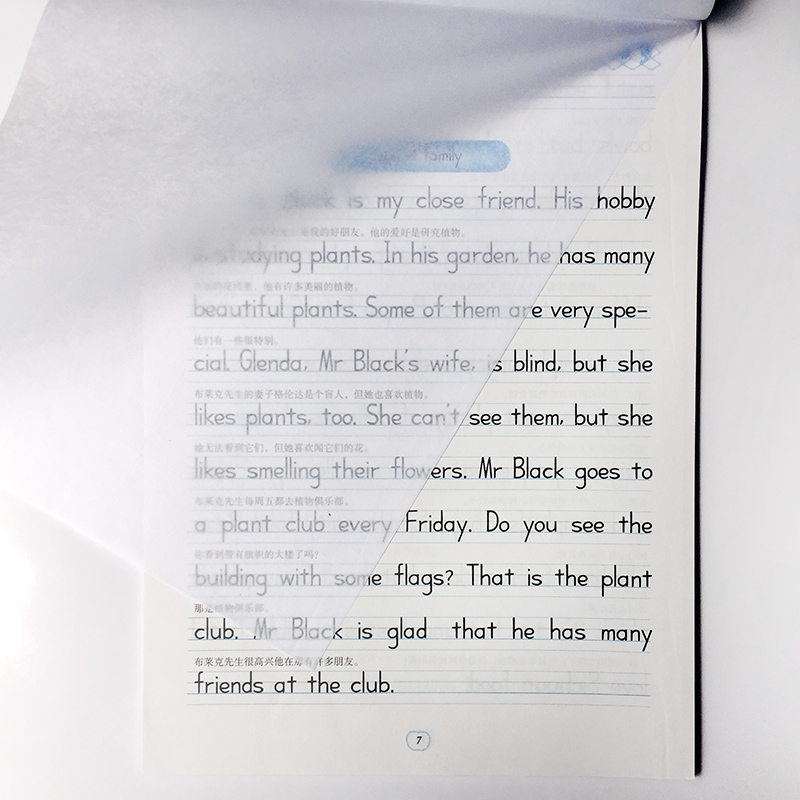 family
is my close friend. His hobby
的好朋友。他的爱好是研究植物。
studying plants. In his garden, he has many
他有许多美丽的植物。
beautiful plants. Some of them are very spe-
他们有一些很特别。
cial. Glenda, Mr Black's wife, is blind, but she
布莱克先生的妻子格伦达是个盲人，但她也喜欢植物。
likes plants, too. She can't see them, but she
她无法看到它们，但她喜欢闻它们的花。
likes smelling their flowers. Mr Black goes to
布莱克先生每周五都去植物俱乐部。
a plant club every Friday. Do you see the
你看到带有旗帜的大楼了吗？
building with some flags? That is the plant
那是植物俱乐部。
club. Mr Black is glad that he has many
布莱克先生很高兴他在那有许多朋友。
friends at the club.
7